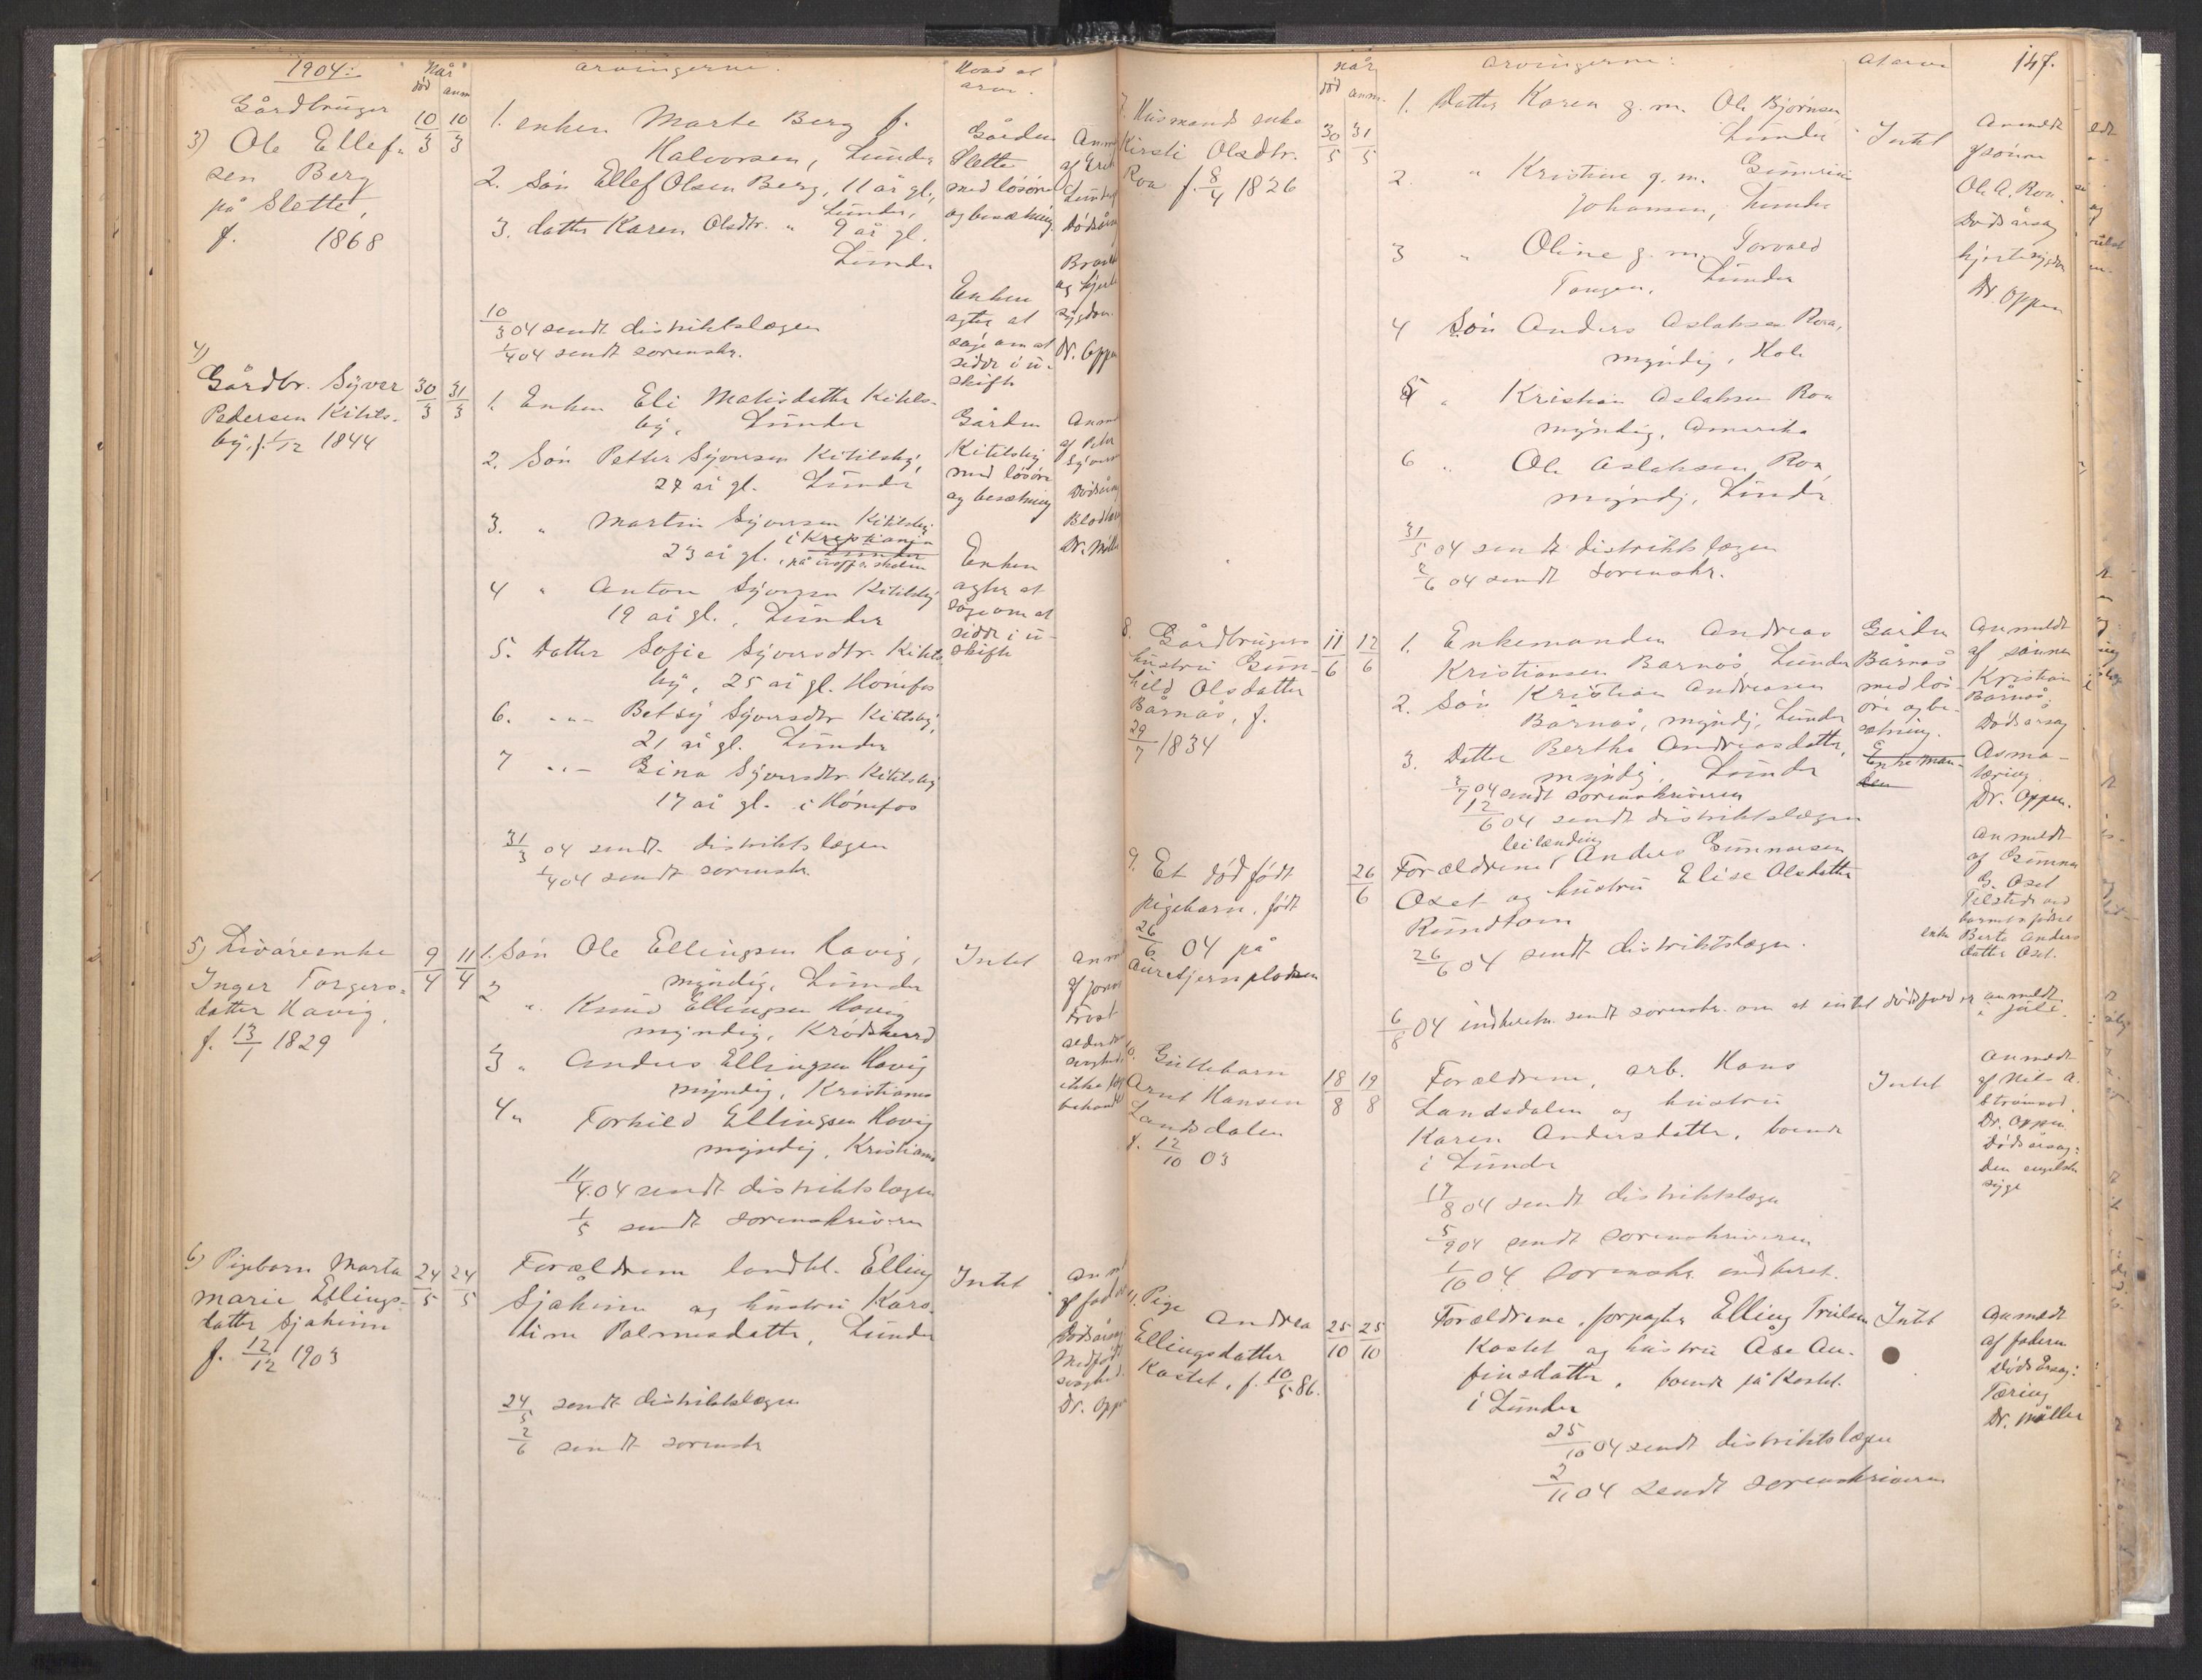 1904:
når
død anm
arvingerne.
Hvad at arve.
Gårdbruger
3) Ole Ellef-
sen Berg
på Slette,
f. 1868
10/3 10/3
1. enken Marte Berg f.
Halvorsen, Lunder
2. Søn Ellef Olsen Berg, 11 år gl.,
Lunder,
3. datter Karen Olsdtr. " 9 år gl.
Lunder
10/3 04 sendt distriktslægen
1/4 04 sendt sorenskr.
Gården
Slette
med løsøre
og besætning
Enken
agter at
søge om at
sidde i u-
skifte
Dødsårsag
og hjerte
sygdom
Dr. Oppen
4)
Gårdbr. Syver
Pedersen Kitils-
by, f. 1/12 1844
30/3 31/3
1. Enken Eli Matisdatter Kitils-
by, Lunder
2. Søn Petter Syversen Kitilsby,
27 år gl. Lunder
3. " Martin Syversen Kitilsby,
i Kristiania
23 år gl., Lunder
på uoff. skolen
4 " Anton Syversen Kitilsby
19 år gl., Lunder
5. Datter Sofie Syversdtr. Kitils-
by, 25 år gl. Hønefos
6. " - Betsy Syversdtr Kitilsby,
21 år gl. Lunder
7 " - Gina Syversdtr. Kitilsby
17 år gl. i Hønefos
31/3 04 sendt distriktslægen
1/4 04 sendt sorenskr.
Gården
Kitilsby
med løsøre
og besætning
Enken
agter at
søge om at
sidde i u-
skifte
af Peder
Syversen
Dødsårsag
Dr. Møller
5) Livøreenke
Inger Torgers-
datter Havig,
f. 13/1 1829
9/4 11/4
1. Søn Ole Ellingsen Havig,
myndig, Lunder
2 " Knud Ellingsen Havig
myndig, Krødsherred
3 " Anders Ellingsen Havig
myndig, Kristiania
4 " Torkild Ellingsen Havig
myndig, Kristiania
11/4 04 sendt distriktslægen
1/5 sendt sorenskriveren
Intet
6) Pigebarn Marta
Marie Ellings-
datter Sjakinn
f. 12/12 1903
24/5 24/5
Forældrene landhl. Elling
Sjakinn og hustru Karo-
line Palmesdatter, Lunder
24/5 sendt distriktslægen
2/6 sendt sorenskr
Intet
Dødsårsag
Medfødt
svaghed
Dr. Oppen
147.
når
død anm.
arvingerne:
At arve
7. Husmands enke
Kirsti Olsdtr.
Roa f. 8/4 1826
30/5 31/5
1. Datter Karen g. m. Ole Bjørnsen
Lunder
2. " Kristine g. m. Gunerius
Johansen, Lunder
3 " Oline g. m. Torvald
Tangen, Lunder
4 Søn Anders Aslaksen Roa,
myndig, Hole
5 " Kristian Aslaksen Roa
myndig, Amerika
6 " Ole Aslaksen Roa,
myndig, Lunder
31/5 04 sendt distriktslægen
2/6 04 sendt sorenskr.
Intet
Anmeldt
af sønnen
Ole A. Roa.
Dødsårsag
hjertesygdom
Dr. Oppen
8. Gårdbrugers
hustru Gun-
hild Olsdatter
Bårnås, f.
29/7 1834
11/6 12/6
1. Enkemanden Andreas
Kristiansen Bårnås, Lunder
2. Søn Kristian Andreasen
Bårnås, myndig, Lunder
3. Datter Berthe Andreasdatter,
myndig, Lunder
1/7 04 sendt sorenskriveren
12/6 04 sendt distriktslægen
Gården
Bårnås
med løs-
øre og be-
sætning.
Enkeman-
den
Anmeldt
af sønnen
Kristian
Bårnås
Dødsårsag
Asma-
tæring.
Dr. Oppen.
9. Et dødfødt
pigebarn, født
26/6 04 på
Auretjernpladsen
26/6
leilænding
Forældrene Anders Gunnarsen
Oset og hustru Elise Olsdatter
Rundtom
26/6 04 sendt distriktslægen.
Anmeldt
af Gunnar
G. Oset
Tilstede ved
barnets fødsel
enke Berte Anders
datter Oset.
6/8 04 indberetn. sendt sorenskr. om at intet dødsfald er anmeldt
i juli.
10. Guttebarn
Arnt Hansen
Landsdalen
f. 12/10 03
18/8 19/8
Forældrene, arb. Hans
Landsdalen og hustru
Karen Andersdatter, boende
i Lunder
19/8 04 sendt distriktslægen
5/9 04 sendt sorenskriveren
1/10 04 sorenskr. indberet.
Intet
Anmeldt
af Nils A.
Strømsod.
Dr. Oppen
Dødsårsag:
Den engelske
syge
11. Pige
Andrea
Ellingsdatter
Kastet, f. 10/5 86.
25/10 25/10
Forældrene, forpagter Elling Trulsen
Kastet og hustru Åse An-
finsdatter, boende på Kastet.
i Lunder
25/10 04 sendt distriktslægen
2/11 04 sendt sorenskriveren
Intet
Anmeldt
af faderen
Dødsårsag:
Tæring
Dr. Møller